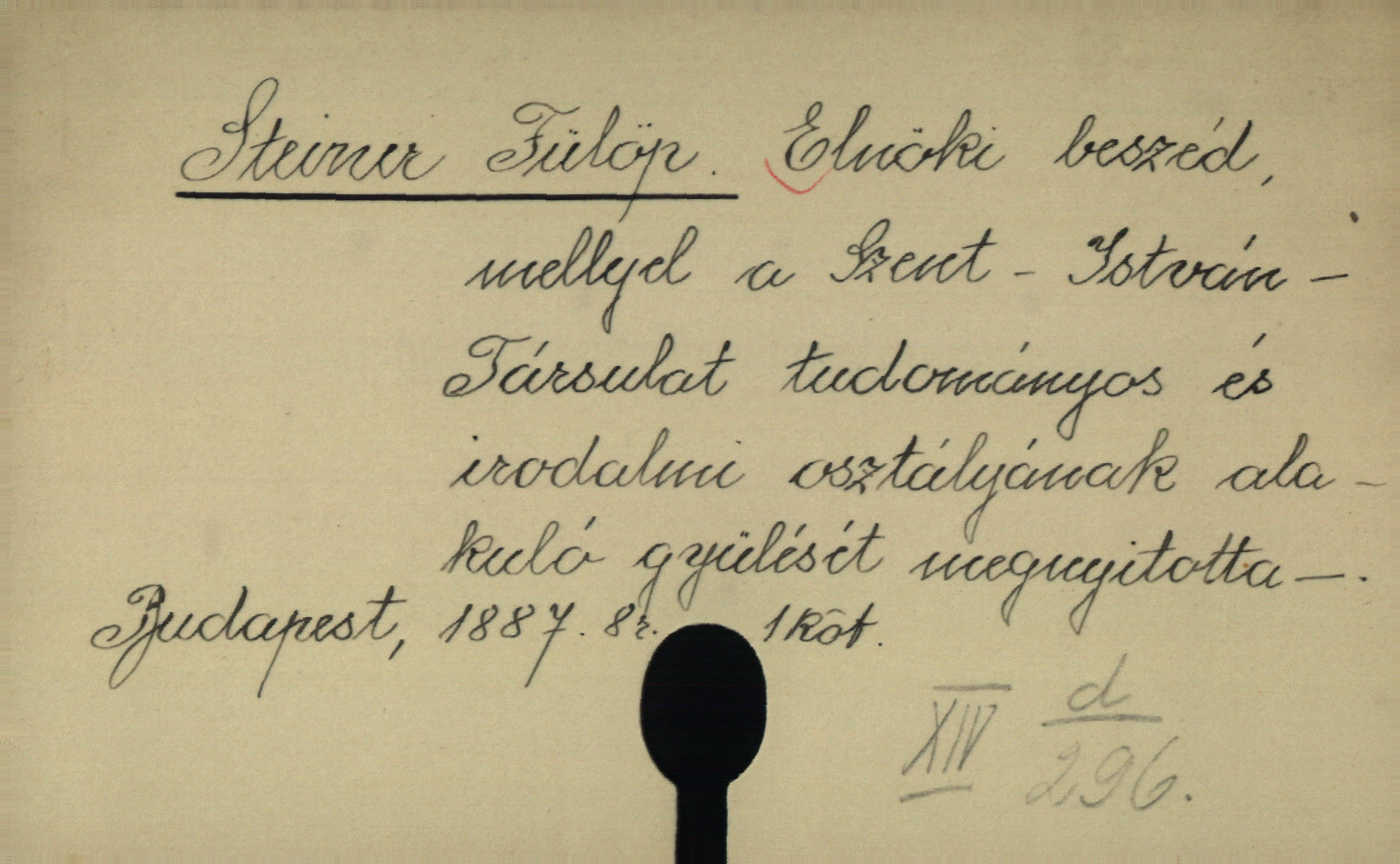 Steiner Fülöp. Elnöki beszéd,
mellyel a Szent - István -
Társulat tudományos és
irodalmi osztályának ala -
kuló gyülését megnyitotta —.
Budapest, 1887. 8r. 1 köt.
XIV d/296.